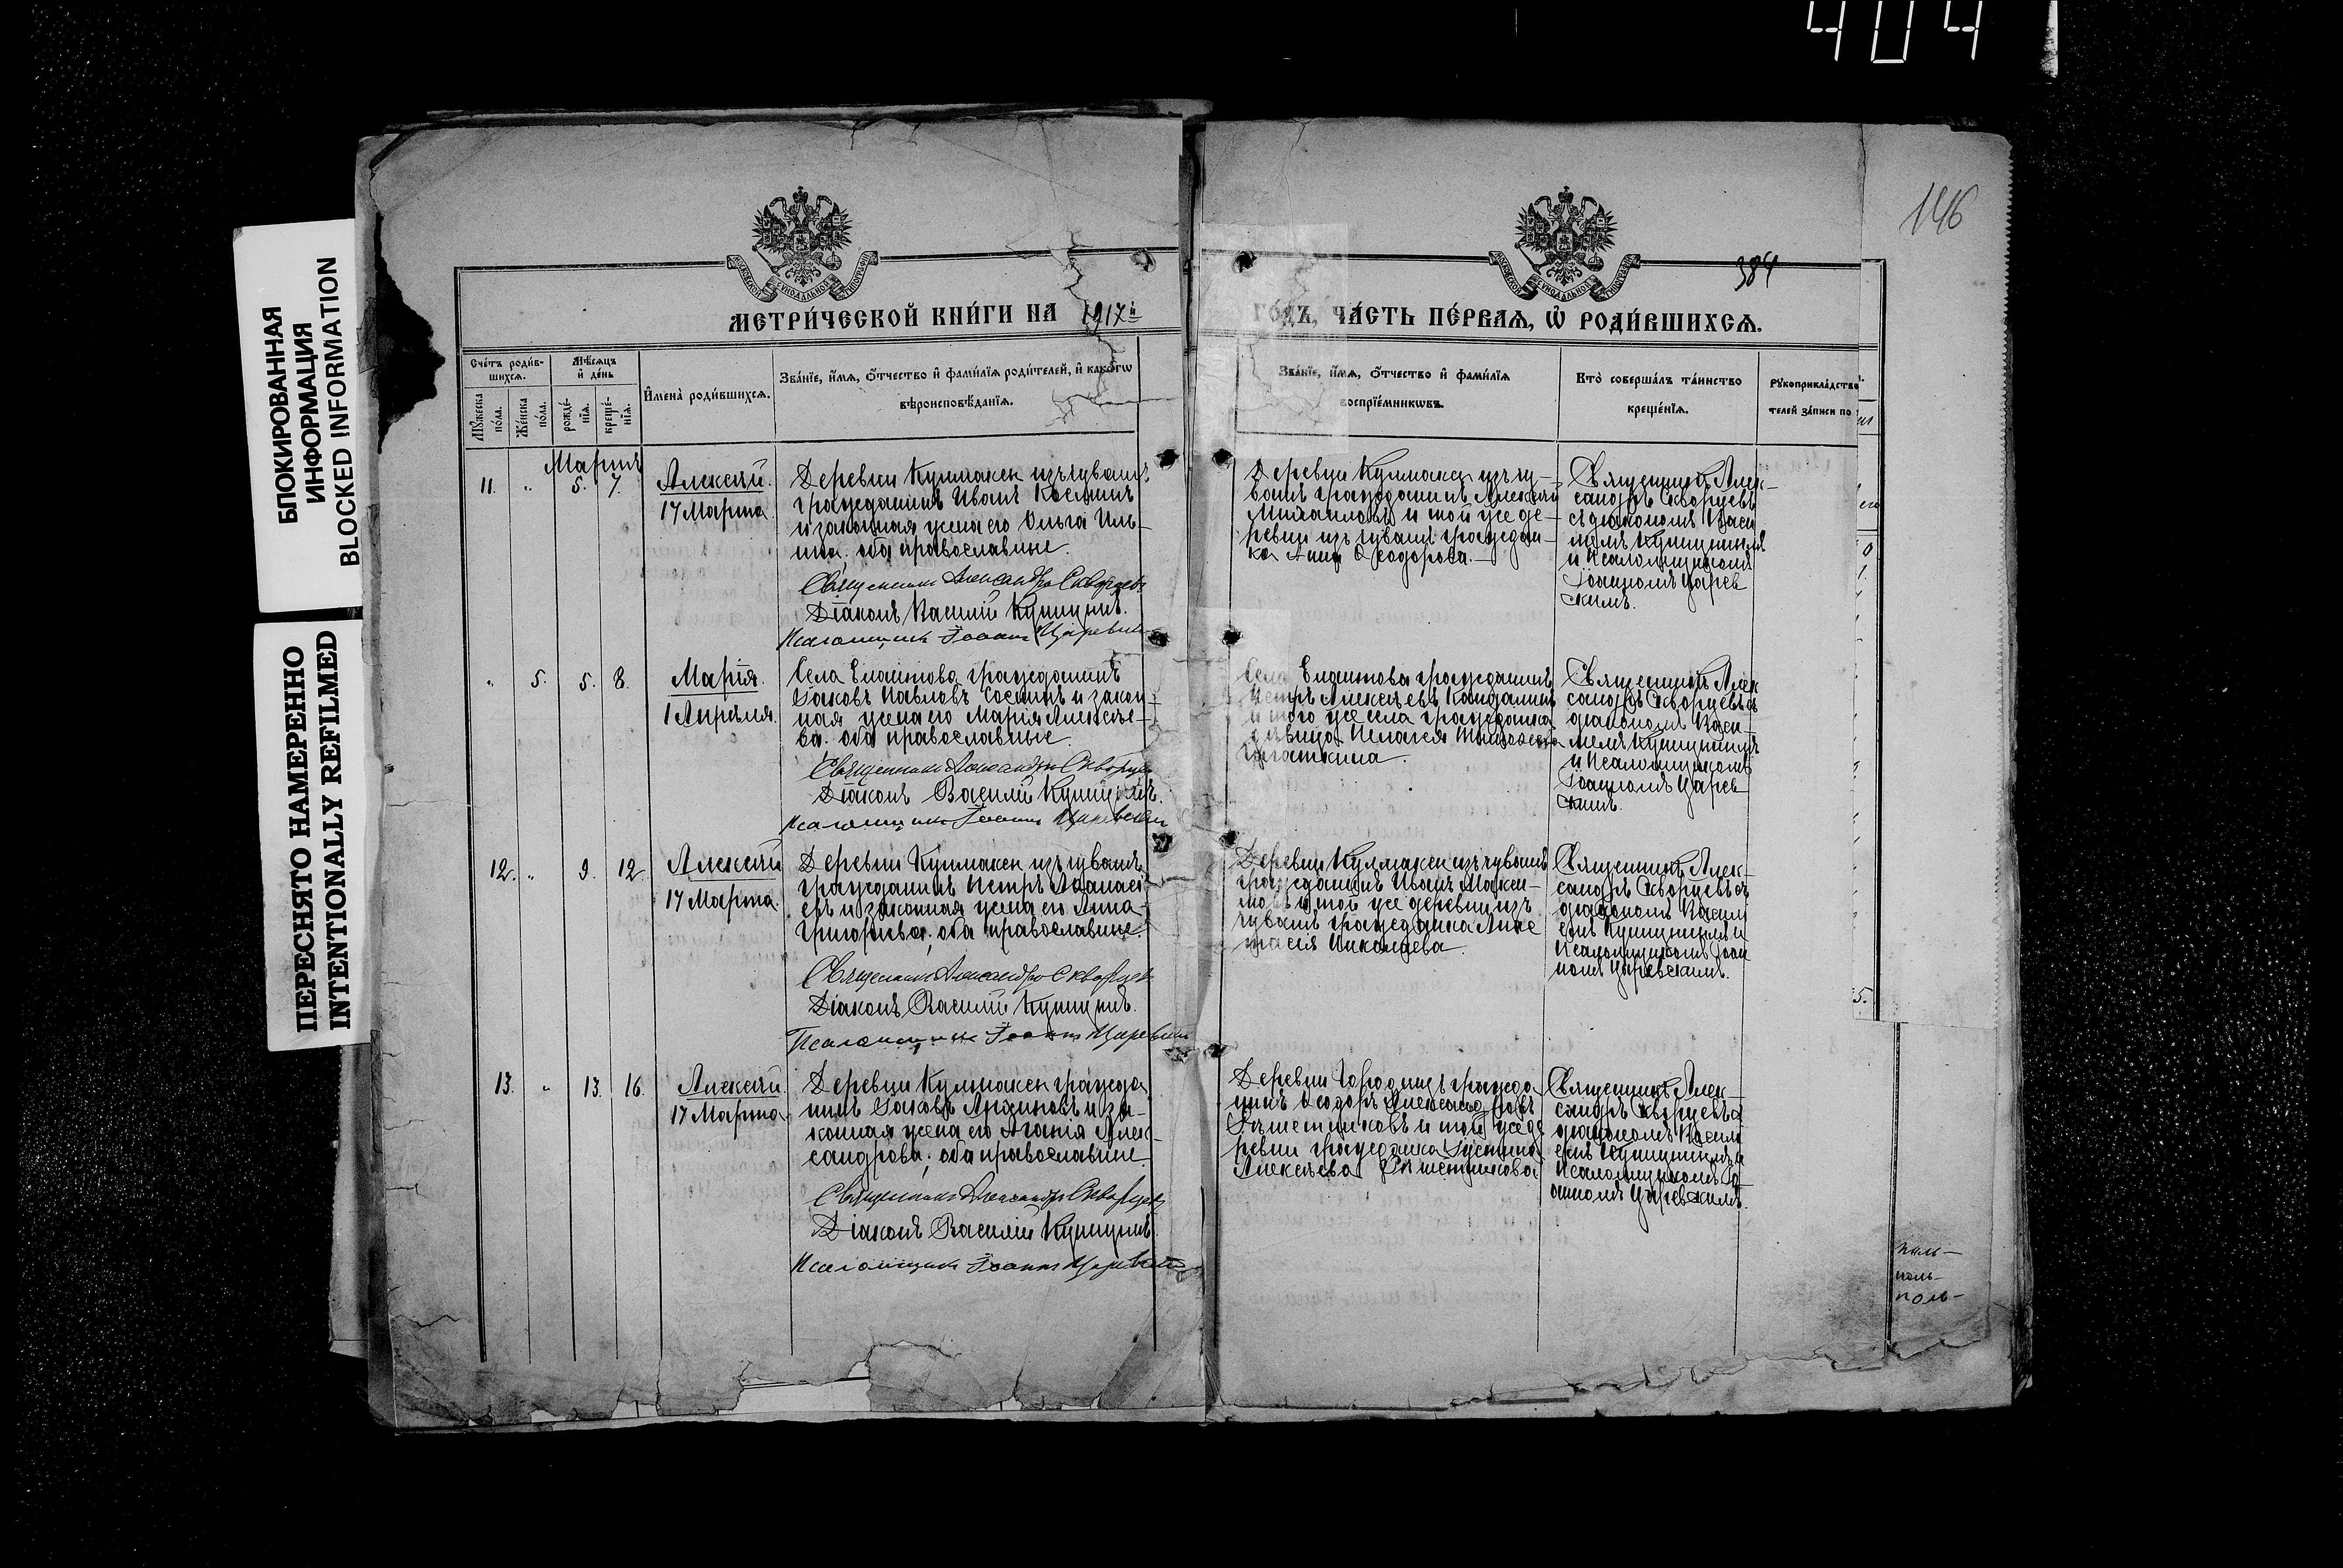 404
146
384
БЛОКИРОВАННАЯ
ИНФОРМАЦИЯ
BLOCKED INFORMATION
ПЕРЕСНЯТО НАМЕРЕННО
INTENTIONALLY REFILMED
МЕТРИ́ЧЕСКОЙ КНИ́ГИ НА 1917й
ГО́ДЪ, ЧА́СТЬ ПЕ́РВАѦ, Ѡ РОДИ́ВШИХСѦ.
Сче́тъ роди́в-
шихсѧ.
Мѣ́сѧцъ
и де́нь
Мꙋ́жеска
по́ла.
Же́нска
по́ла.
рожде́-
нїѧ.
креще́-
нїѧ.
И҆мена̀ роди́вшихсѧ.
Зва́нїе, и҆́мѧ, ѻ҆́тчество и҆ фами́лїѧ роди́телей, и҆ како́гѡ
вѣроисповѣ́данїѧ.
Зва́нїе, и҆́мѧ, ѻ҆́тчество и҆ фами́лїѧ
воспрїе́мникѡвъ.
Кто̀ соверша́лъ та́инство
креще́нїѧ.
Рꙋкоприкла́дство
телей за́писи по
Мартъ
11. " 5. 7.
Алексѣй.
17 Марта.
Деревни Кулмаксы изъ чувашъ
гражданинъ Иванъ Косминъ
и законная жена его Ольга Иль-
ина; оба православные.
Священникъ Александръ Скворцовъ
Діаконъ Василій Купцынъ.
Псаломщикъ Іоаннъ Царевскій
Деревни Кулмаксы изъ чу-
вашъ гражданинъ Алексѣй
Михаиловъ и той же де-
ревни изъ чувашъ граждан-
ка Анна Ѳеодорова.
Священникъ Алек-
сандръ Скворцовъ
съ діакономъ Васи
и Псаломщикомъ
Іоанномъ Царев
скимъ.
" 5. 5. 8.
Марія.
1 Апрѣля.
Села гражданинъ
Іаковъ Павловъ и закон-
ная жена его Марія Алексѣе-
ва; оба православные.
Священникъ Александръ Скворцовъ
Діаконъ Василій Купцынъ.
Псаломщикъ Іоаннъ Царевскій
Села гражданинъ
Петръ Алексѣевъ
и того же села гражданка
дѣвица Пелагея
Священникъ Алек
сандръ Скворцовъ съ
діакономъ Васи-
и Псаломщикомъ
Іоанномъ Царев
скимъ.
12. " 9. 12.
Алексѣй
17 Марта.
Деревни Кулмаксы изъ чувашъ
гражданинъ Петръ Аѳанась
евъ и законная жена его Анна
Григорьева; оба православные.
Священникъ Александръ Скворцовъ
Діаконъ Василій Купцынъ.
Псаломщикъ Іоаннъ Царевскій
Деревни Кулмаксы изъ чувашъ
гражданинъ Иванъ Макси-
мовъ и той же деревни изъ
чувашъ гражданка Анас
тасія Николаева.
Священникъ Алек-
сандръ Скворцовъ съ
діакономъ Васил
Псаломщикомъ Іоан
номъ Царевскимъ.
13. " 13. 16.
Алексѣй
17 Марта
Деревни Кулмаксы гражда
нинъ Іаковъ и за-
конная жена его Агапія Алек-
сандрова; оба православные.
Священникъ Александръ Скворцовъ
Діаконъ Василій Купцынъ
Псаломщикъ Іоаннъ Царевскій
Деревни гражда
нинъ Ѳеодоръ Александровъ
Рѣшетниковъ и той же де
ревни гражданка Іустина
Алексѣева Рѣшетникова
Священникъ Алек-
сандръ Скворцовъ съ
діакономъ Васил
Псаломщикомъ Іо
анномъ Царевскимъ.